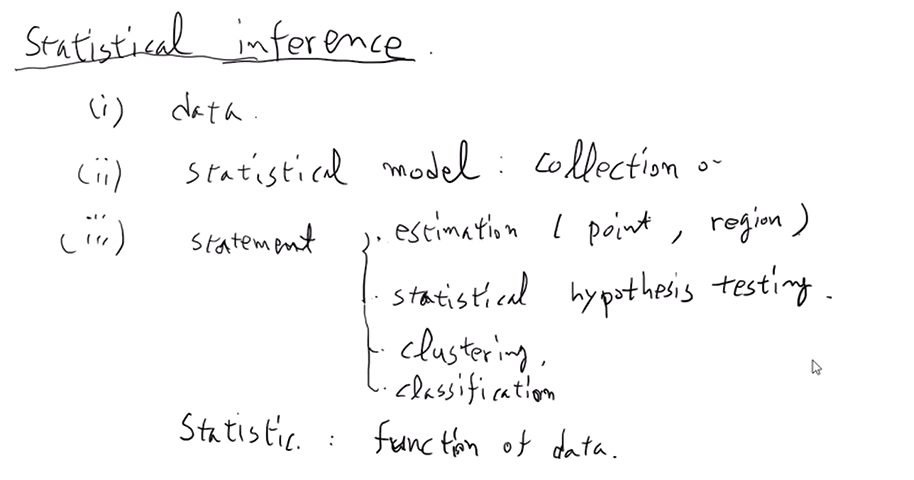 Statistical inference.
(i) data.
(ii) statistical model : collection o
(iii) statement { · estimation ( point , region )
· statistical hypothesis testing.
· clustering,
· classification
Statistic. : function of data.